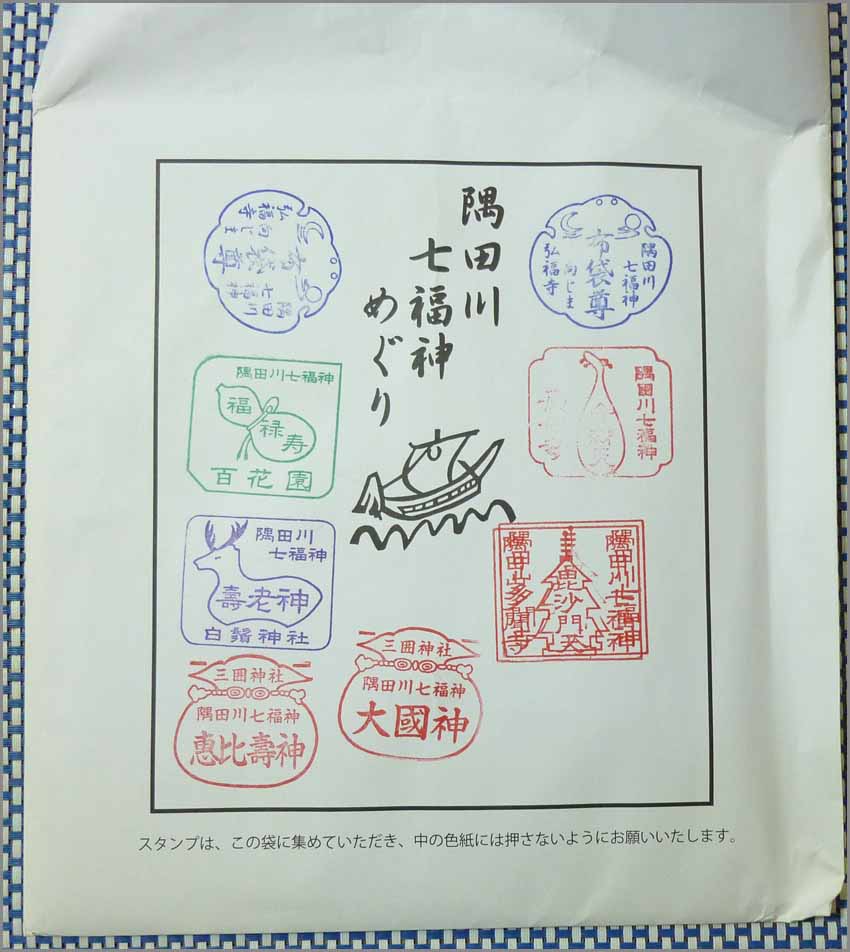 隅田川
七福神
めぐり
隅田川
七福神
布袋尊
向じま
弘福寺
隅田川七福神
隅田川七福神
毘沙門天
隅田山多聞寺
隅田川
七福神
布袋尊
向じま
弘福寺
隅田川七福神
福
禄
寿
百花園
隅田川
七福神
壽老神
白鬚神社
三囲神社
隅田川七福神
恵比壽神
三囲神社
隅田川七福神
大國神
スタンプは、この袋に集めていただき、中の色紙には押さないようにお願いいたします。